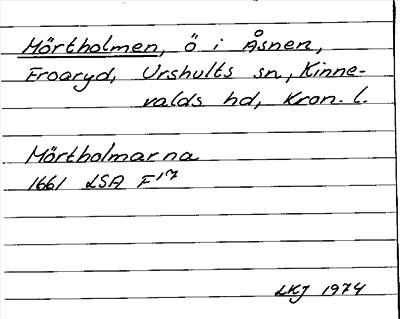 Mörtholmen, ö i Åsnen,
Froaryd, Urshults sn, Kinne-
valds hd, Kron. l.
Mörtholmarna
1661 LSA F17
LKJ 1974